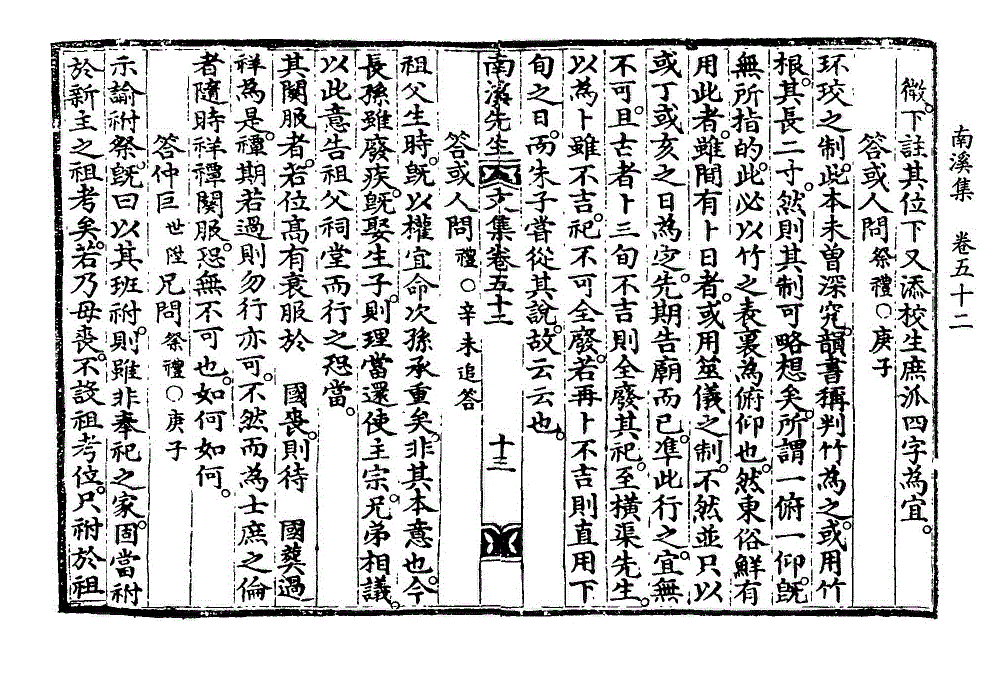 南溪集　卷五十二
徵。下註其位下又添校生庶派四字為宜。
答或人問 祭禮○庚子
环珓之制。此本未曾深究。韻書稱判竹為之。或用竹
根。其長二寸。然則其制可略想矣。所謂一俯一仰。旣
無所指的。此必以竹之表裏為俯仰也。然東俗鮮有
用此者。雖間有卜日者。或用筮儀之制。不然並只以
或丁或亥之日為定。先期告廟而已。準此行之。宜無
不可。且古者卜三旬不吉則全廢其祀。至橫渠先生。
以為卜雖不吉。祀不可全廢。若再卜不吉則直用下
旬之日。而朱子嘗從其說。故云云也。
南溪先生文集卷五十二　十三
答或人問 禮○辛未追答
祖父生時。旣以權宜命次孫承重矣。非其本意也。今
長孫雖廢疾。旣娶生子。則理當還使主宗。兄弟相議。
以此意告祖父祠堂而行之恐當。
其闋服者。若位高有衰服於　國喪。則待　國葬過
祥為是。禫期若過則勿行亦可。不然而為士庶之倫
者。隨時祥禫闋服。恐無不可也。如何如何。
答仲巨 世陞 兄問 祭禮○庚子
示諭祔祭。旣曰以其班祔。則雖非奉祀之家。固當祔
於新主之祖考矣。若乃母喪。不設祖考位。只祔於祖